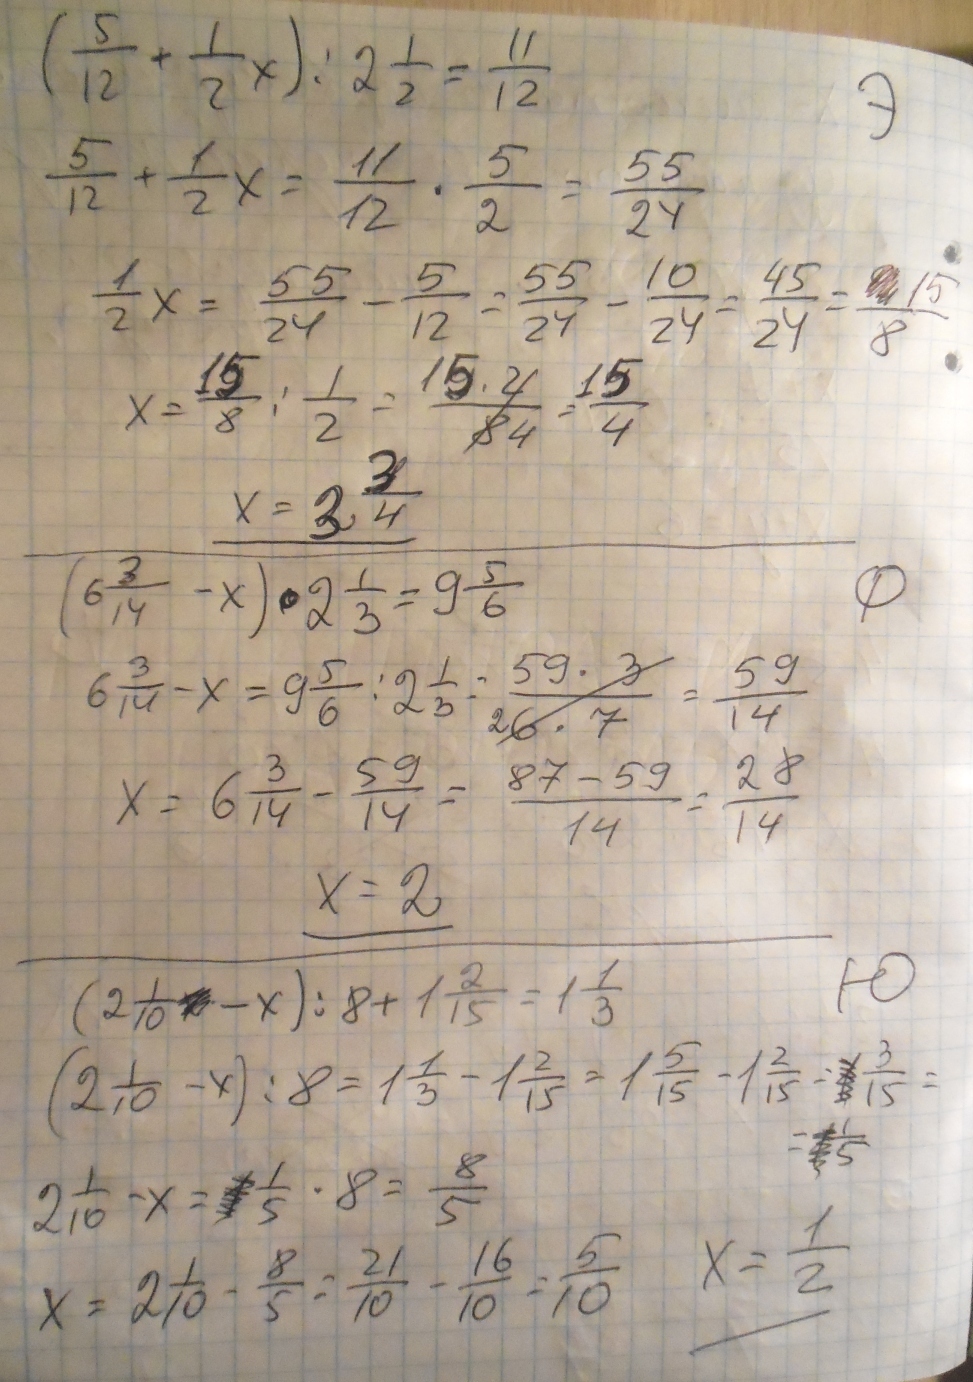 (5/12 + 1/2 x) : 2 1/2 = 11/12 Э
5/12 + 1/2 x = 11/12 · 5/2 = 55/24
1/2 x = 55/24 - 5/12 = 55/24 - 10/24 = 45/24 = 15/8
x = 15/8 : 1/2 = 15·2/8 4 = 15/4
x = 3 3/4
(6 3/14 - x) · 2 1/3 = 9 5/6 Ф
6 3/14 - x = 9 5/6 : 2 1/3 = 59·3/2 6·7 = 59/14
x = 6 3/14 - 59/14 = 87-59/14 = 28/14
x = 2
(2 1/10 - x) : 8 + 1 2/15 = 1 1/3 Ю
(2 1/10 - x) : 8 = 1 1/3 - 1 2/15 = 1 5/15 - 1 2/15 = 3/15 =
= 1/5
2 1/10 - x = 1/5 · 8 = 8/5
x = 2 1/10 - 8/5 = 21/10 - 16/10 = 5/10 x = 1/2